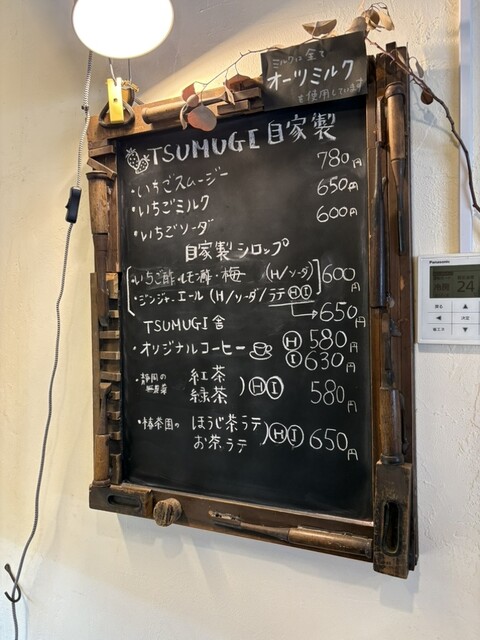 ミルクは全て
オーツミルク
を使用しています
TSUMUGI自家製
・いちごスムージー 780円
・いちごミルク 650円
・いちごソーダ 600円
自家製シロップ
・いちご酢・レモン酢・梅 (H/ソーダ) 600円
・ジンジャーエール (H/ソーダ/ラテⒽⒾ) → 650円
TSUMUGI舎
・オリジナルコーヒー Ⓗ 580円
Ⓘ 630円
・静岡の 紅茶
無農薬 緑茶 )ⒽⒾ 580円
ほうじ茶ラテ
お茶ラテ )ⒽⒾ 650円
Panasonic
24